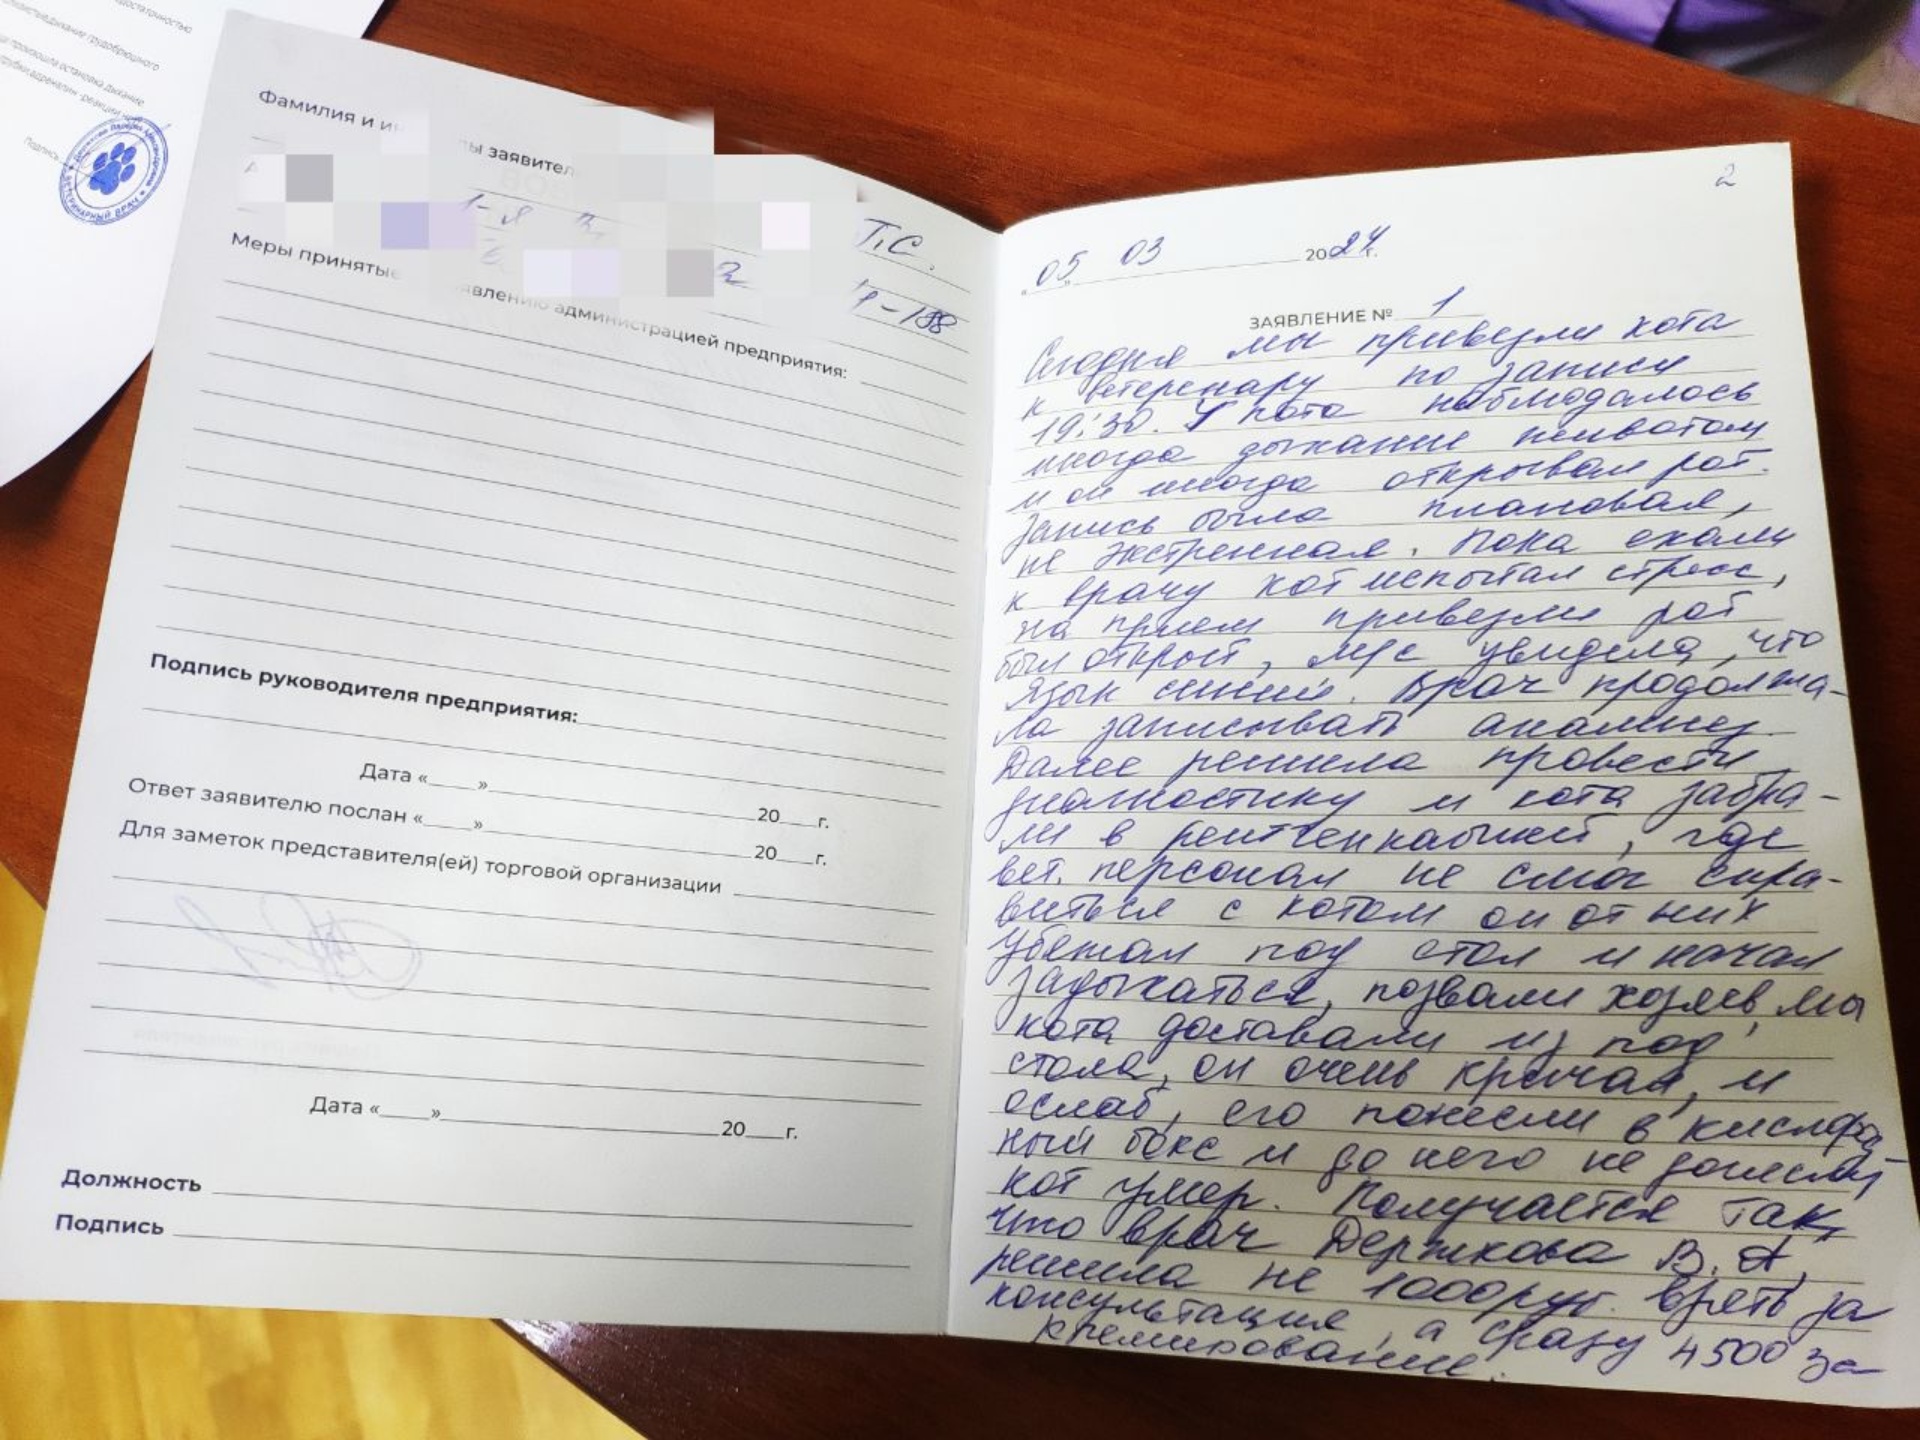 достаточностью
дыхание грудобрюшного
произошла остановка дыхание
адреналин -реакции нет
Подпись
ВЕТЕРИНАРНЫЙ ВРАЧ
Фамилия и
заявител
Т.С.
-198
Меры принятые
явлению администрацией предприятия:
Подпись руководителя предприятия:
Дата «____» 20___г.
Ответ заявителю послан «____» 20___г.
Для заметок представителя(ей) торговой организации
Дата «____» 20___г.
Должность
Подпись
2
„05„ 03 2024г.
ЗАЯВЛЕНИЕ № 1
Сегодня мы привезли кота
к ветеренару по записи
19:30. У кота наблюдалось
иногда дыхание животом
и он иногда открывал рот.
Запись была плановая,
не экстренная. Пока ехали
к врачу кот испытал стресс,
на прием привезли рот
был открыт, увидела, что
язык синий. Врач продолжа-
ла записывать анамнез.
Далее решила провести
диагностику и кота забра-
ли в рентгенкабинет, где
вет. персонал не смог спра-
виться с котом он от них
убежал под стол и начал
задыхаться, позвали хозяев, мы
кота доставали из под
стола, он очень кричал, и
ослаб, его понесли в кислород-
ный бокс и до него не донесли
кот умер. Получается так,
что врач Держкова В. А.
решила не 1000 руб. взять за
консультация, а сразу 4500 за
кремирование.